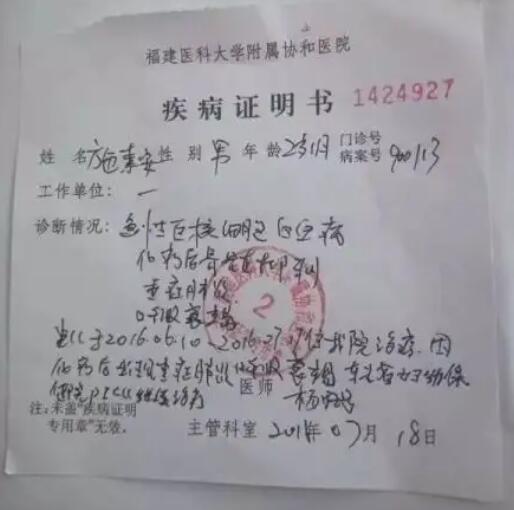 福建医科大学附属协和医院
疾病证明书 1424927
姓 名 施秉安 性 别 男 年 龄 2岁 月 门诊号 病案号 900113
工作单位:一
诊断情况:急性巨核细胞白血病
化疗后骨髓抑制
重症肺炎
呼吸衰竭
2
患儿于2016.06.10 2016.07.17住我院治疗,因
化疗后出现重症肺炎 呼吸衰竭 转 妇幼保
健院PICU继续治疗
医师
注:未盖“疾病证明
专用章”无效.
主管科室 2016年07月18日